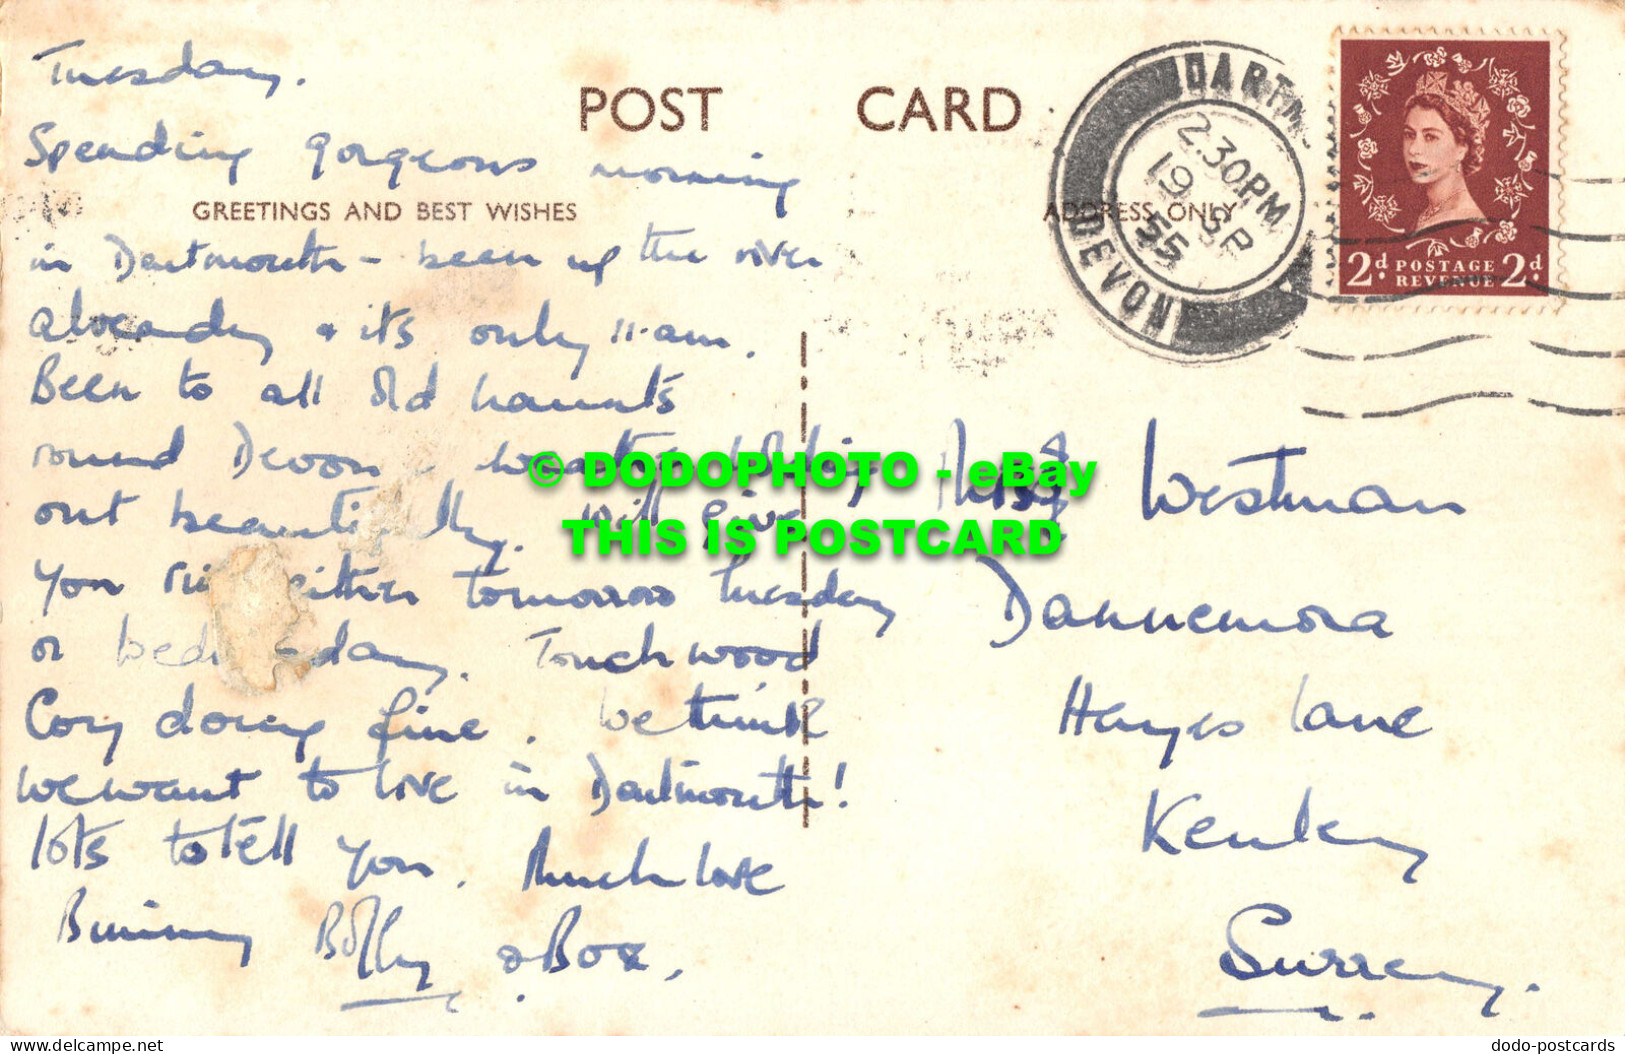 Tuesday.
POST CARD
Spending gorgeous morning
GREETINGS AND BEST WISHES
in Dartmouth - been up the river
alveandy & its only 11.am.
Been to all old haunts
round Devon - weather holding
out beautifully. Will give
you either tomorrow Tuesday
or day. Touch wood
Cory doing fine. We think
we want to live in Dartmouth!
lots to tell you. Much love
Bunny Boffy & Box.
DARTM
DEVON
2.30PM
19 SP
55
ADDRESS ONLY
2d. POSTAGE 2d.
REVENUE
Westman
Dannemora
Hayes Lane
Kenley
Surrey.
© DODOPHOTO - eBay
THIS IS POSTCARD
dodo-postcards
delcampe.net